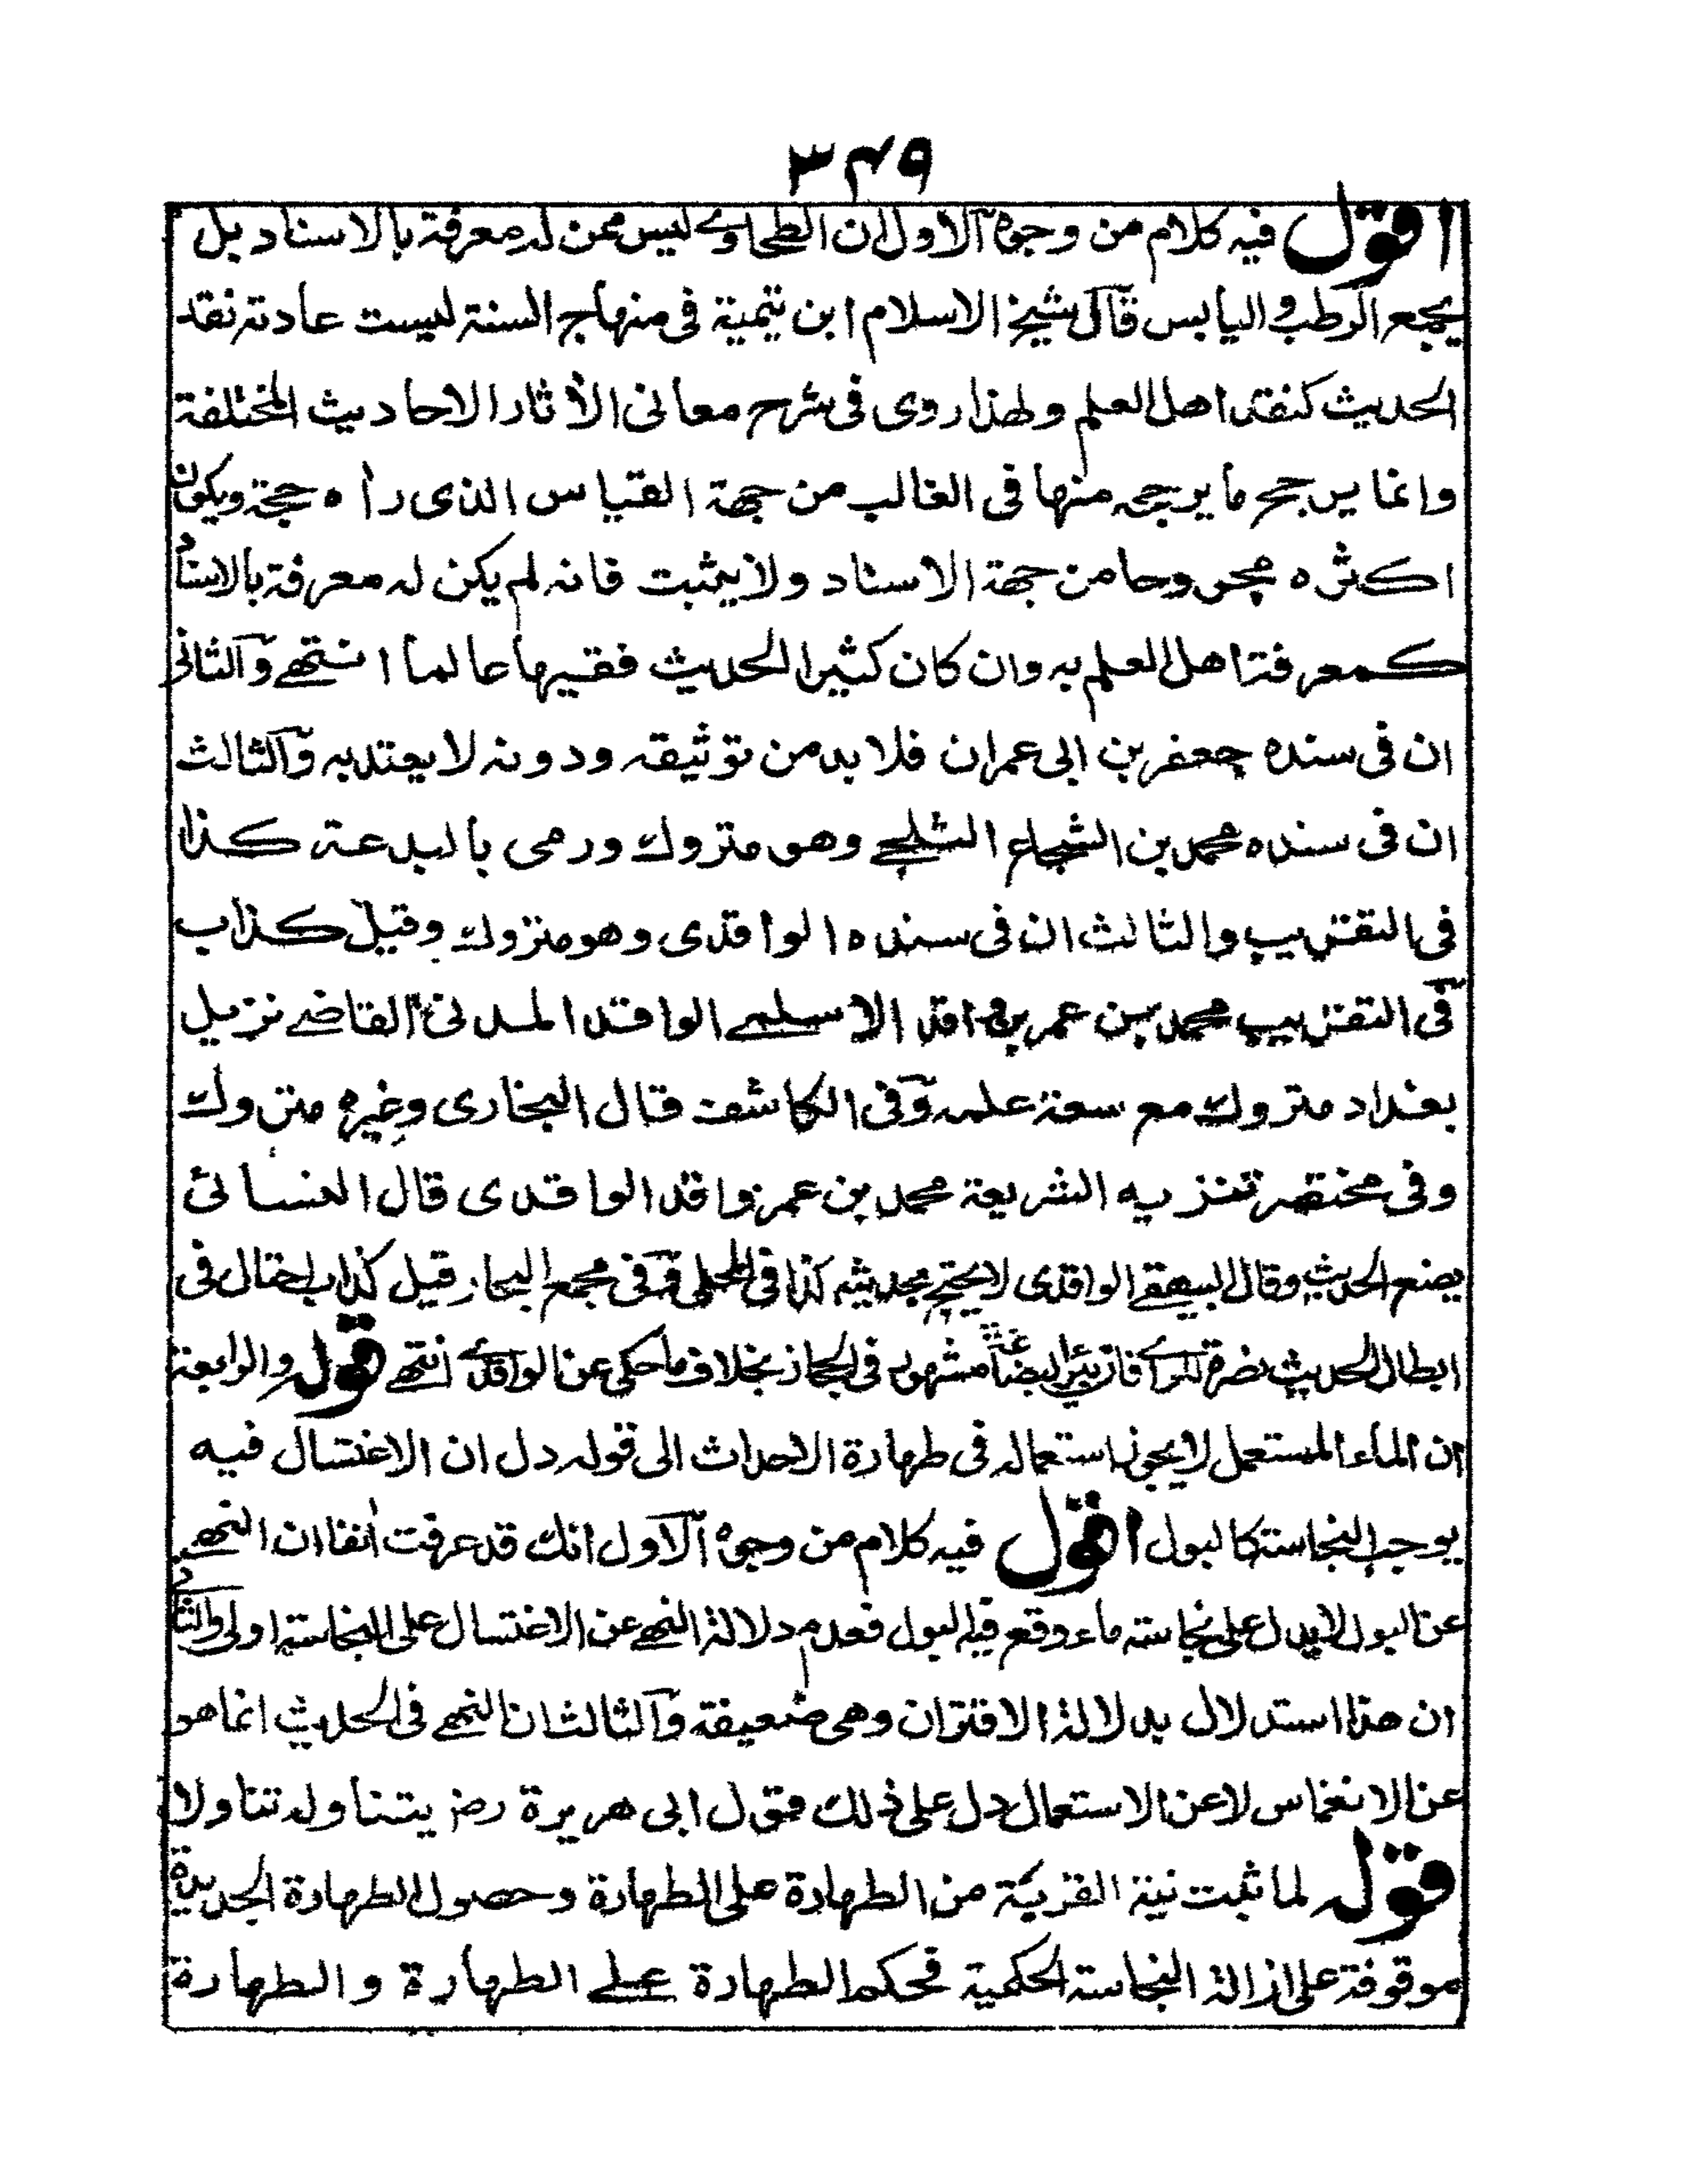 ۳۴۹
اقول فيه كلام من وجوه الاول ان الطحاوے ليس ممن له معرفة بالاسناد بل
يجمع الرطب و اليابس قال شيخ الاسلام ابن تيمية فى منهاج السنة ليست عادته نقد
الحديث كنقد اهل العلم ولهذا روى فى شرح معانى الأثار الاحاديث المختلفة
وانما يرجح ما يرجحه منها فى الغالب من جهة القياس الذى رأه حجة ويكون
اكثره مجروحا من جهة الاسناد ولا يثبت فانه لم يكن له معرفة بالاسناد
كمعرفة اهل العلم به وان كان كثير الحديث فقيها عالما انتهے والثانى
ان فى سنده جعفر بن ابى عمران فلا بد من توثيقه ودونه لا يعتد به والثالث
ان فى سنده محمد بن الشجاع الثلجے وهو متروك ورمى بالبدعة كذا
فى التقريب والثالث ان فى سنده الواقدى وهو متروك وقيل كذاب
فى التقريب محمد بن عمر بن واقد الاسلمے الواقد المدنى القاضے نزيل
بغداد متروك مع سعة علمه وفى الكاشف قال البخارى وغيره متروك
وفى مختصر تنزيه الشريعة محمد بن عمر واقد الواقدى قال النسائى
يضع الحديث وقال البيهقے الواقدى لا يحتج بحديثه كذا فى المحلى وفى مجمع البحار قيل كذاب احتال فى
ابطال الحديث نصرة للرأے فان بئر بضاعة مشهور فى الحجاز بخلاف ما حكى عن الواقدے انتهے قوله والرابعة
ان الماء المستعمل لا يجوز استعماله فى طهارة الاحداث الى قوله دل ان الاغتسال فيه
يوجب النجاسة كالبول اقول فيه كلام من وجوه الاول انك قد عرفت أنفا ان النهے
عن البول لا يدل على نجاسة ماء وقع فيه البول فعدم دلالة النهے عن الاغتسال على النجاسة اولى والثانى
ان هذا استدلال بدلالة الاقتران وهى ضعيفة والثالث ان النهے فى الحديث انما هو
عن الانغماس لا عن الاستعمال دل على ذلك قول ابى هريرة رض يتناوله تناولا
قوله لما ثبت نية القربة من الطهارة على الطهارة وحصول الطهارة الجديدة
موقوفة على ازالة النجاسة الحكمية فحكم الطهارة علے الطهارة والطهارة